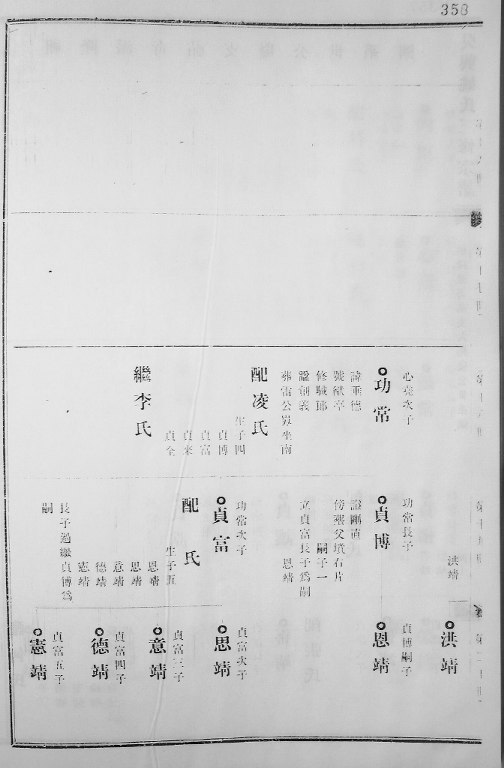 358
心堯次子
功常
諱秉德
號獻亭
修職郎
諡創義
葬雷公巽坐南
配凌氏
生子四
貞博
貞富
貞來
貞全
繼李氏
洪靖
功常長子
貞博
諡剛直
傍葬父墳右片
嗣子一
立貞富長子爲嗣
恩靖
功常次子
貞富
配 氏
生子五
恩靖
思靖
意靖
德靖
憲靖
長子過繼貞博爲
嗣
洪靖
貞博嗣子
恩靖
貞富次子
思靖
貞富三子
意靖
貞富四子
德靖
貞富五子
憲靖